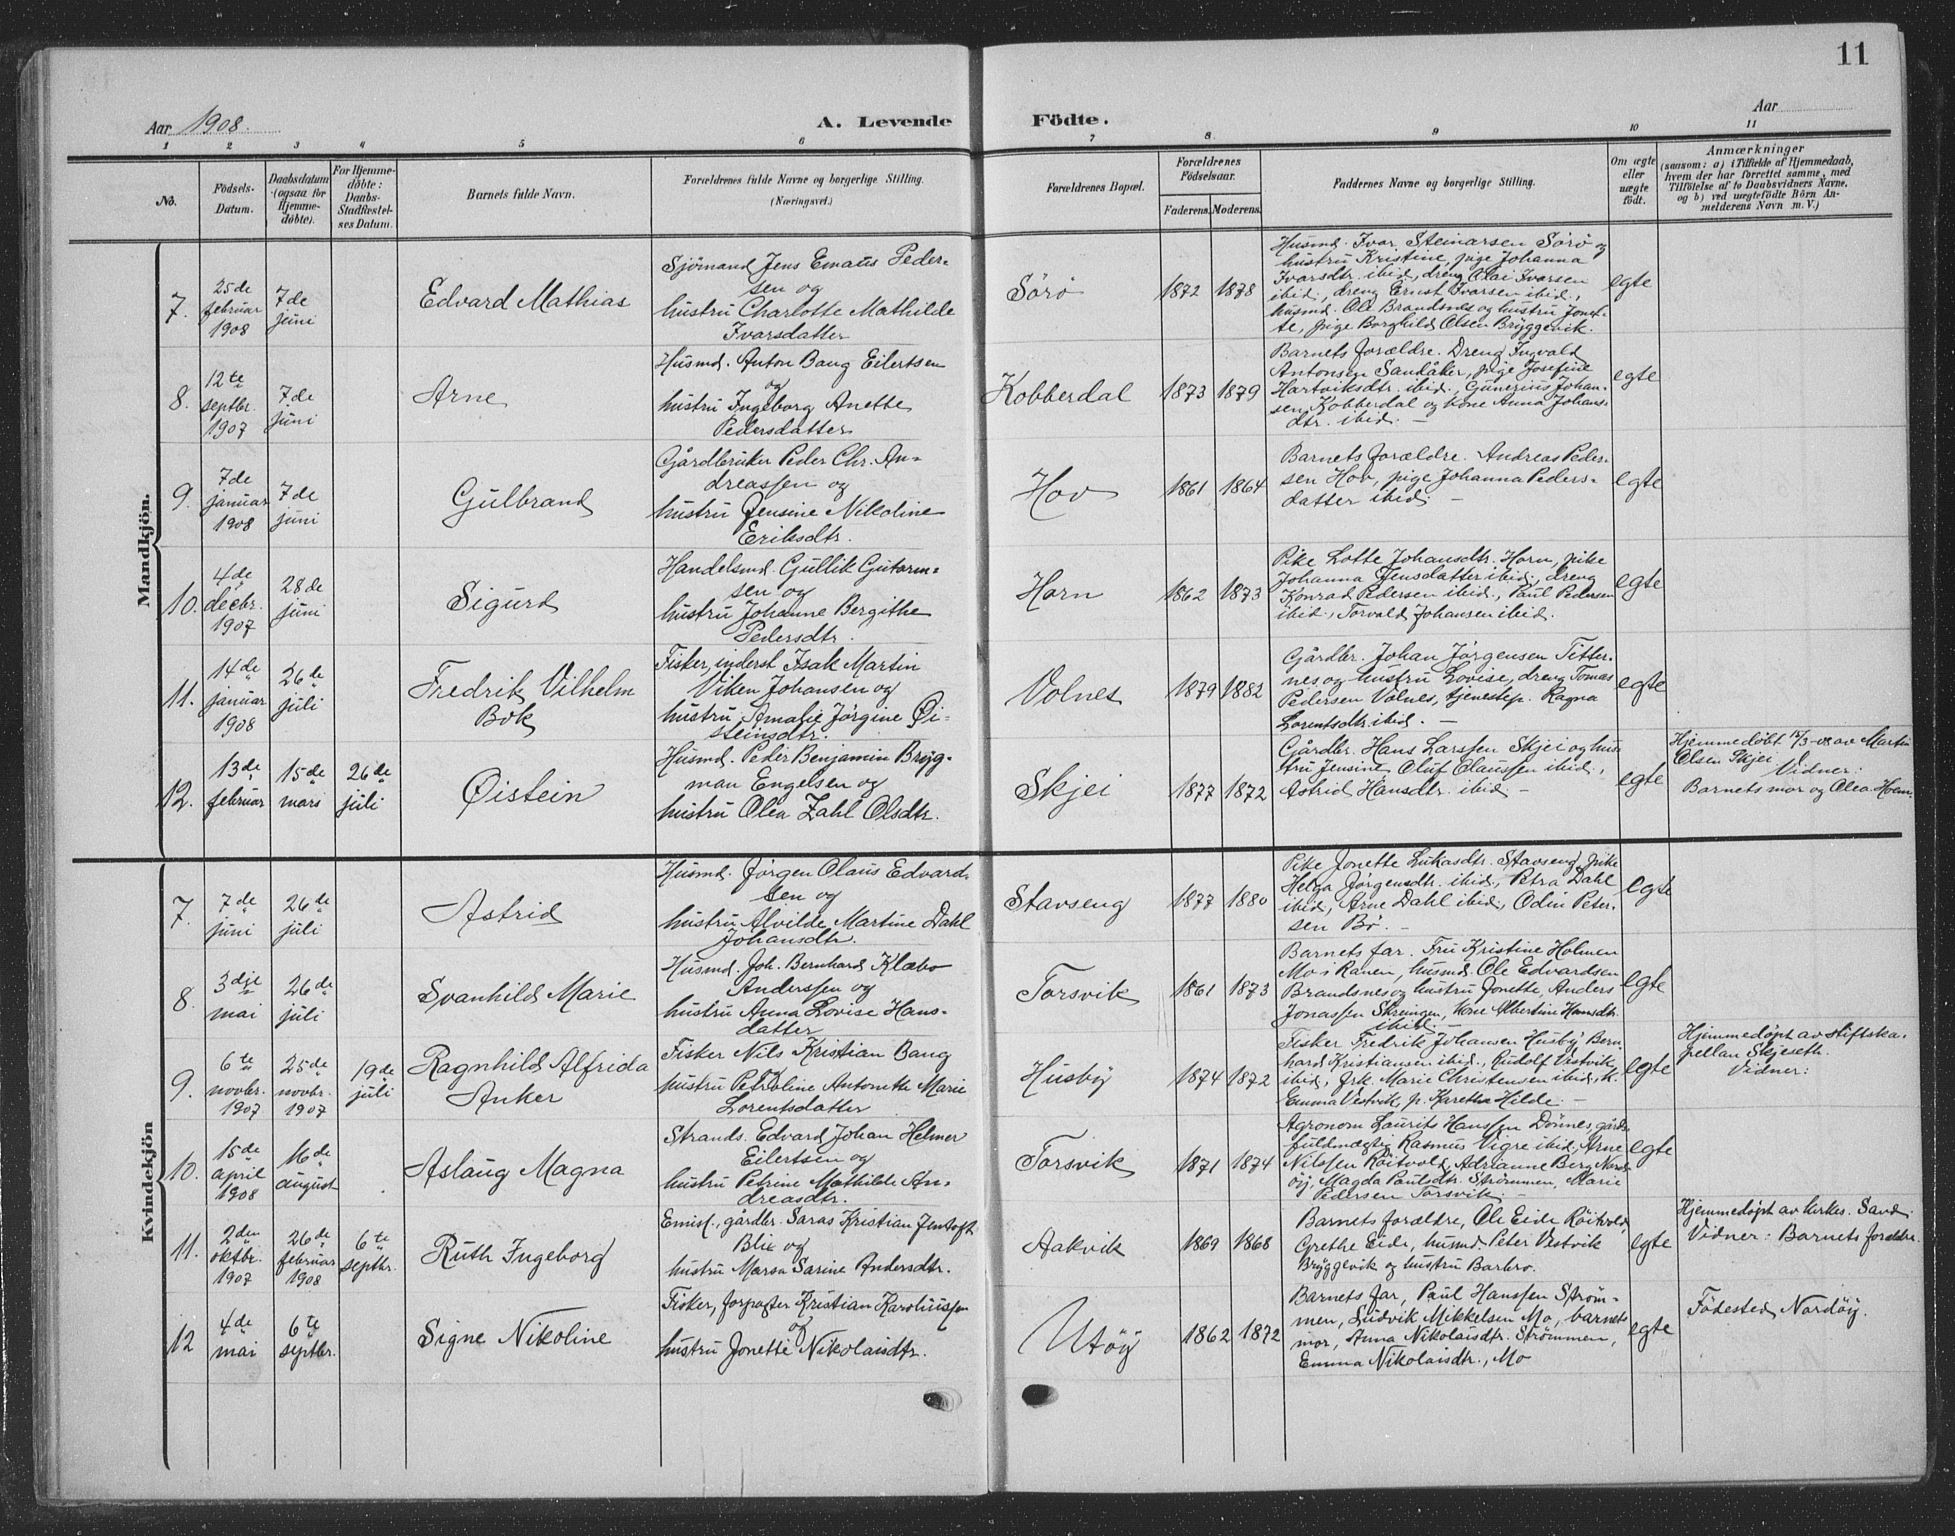 11
Aar 1908.
A. Levende Födte.
Aar
1 2 3 4 5 6 7 8 9 10 11
No.
Födsels-
Datum.
Daabsdatum
(ogsaa for
Hjemme-
döbte).
For Hjemme-
döbte:
Daabs-
Stadfæstel-
ses Datum.
Barnets fulde Navn.
Forældrenes fulde Navne og borgerlige Stilling.
(Næringsvei.)
Forældrenes Bopæl.
Forældrenes
Födselsaar.
Faderens. Moderens.
Faddernes Navne og borgerlige Stilling.
Om ægte
eller
uægte
födt.
Anmærkninger
(saasom: a) i Tilfælde af Hjemmedaab,
hvem der har forrettet samme, med
Tilföielse af to Daabsvidners Navne,
og b) ved uægtefödte Börn An-
melderens Navn m. V.)
Mandkjön.
7.
25de
februar
1908
7de
juni
Edvard Mathias
Sjömand Jens Emaus Peder-
sen og
hustru Charlotte Mathilde
Ivarsdatter
Sörö
1872 1878
Husmd. Ivar Steinarsen Sörö og
hustru Kristine, pige Johanna
Ivarsdtr. ibid, dreng Olai Ivarsen
ibid, dreng Ernst Ivarsen ibid,
husmd. Ole Brandsnes og hustru Jonet-
te, pige Borghild Olsen Bryggevik.
egte
8.
12te
septbr.
1907
7de
juni
Arne
Husmd. Anton Bang Eilertsen
og
hustru Ingeborg Anette
Pedersdatter
Kobberdal
1873 1879
Barnets forældre. Dreng Ingvald
Antonsen Sandåker, pige Josefine
Hartviksdtr. ibid., Gunerius Johan-
sen Kobberdal og kone Anna Johans-
dtr. ibid. –
egte
9.
7de
januar
1908
7de
juni
Gulbrand
Gårdbruker Peder Chr. An-
dreassen og
hustru Jensine Nikoline
Eriksdtr.
Hov
1861 1864
Barnets forældre. Andreas Peder-
sen Hov, pige Johanna Peders-
datter ibid. –
egte
10.
4de
decbr.
1907
28de
juni
Sigurd
Handelsmd. Gullik Gutorm-
sen og
hustru Johanne Bergithe
Pedersdtr.
Horn
1862 1873
Pike Lotte Johansdtr. Horn, pike
Johanna Jensdatter ibid, dreng
Konrad Pedersen ibid., Paul Pedersen
ibid., Torvald Johansen ibid.
egte
11.
14de
januar
1908
26de
juli
Fredrik Vilhelm
Bok
Fisker, inderst Isak Martin
Viken Johansen og
hustru Amalie Jörgine Øi-
steinsdtr.
Volnes
1879 1882
Gårdbr. Johan Jörgensen Titter-
nes og hustru Lovise, dreng Tomas
Pedersen Volnes, tjenestep. Ragna
Lorentsdtr. ibid. –
egte
12.
13de
februar
15de
mars
26de
juli
Øistein
Husmd. Peder Benjamin Bryg-
man Engelsen og
hustru Olea Zahl Olsdtr.
Skjei
1877 1872
Gårdbr. Hans Larssen Skjei og hus-
tru Jensine, Oluf Claussen ibid.,
Astrid Hansdtr. ibid –
egte
Hjemmedøbt 15/3-08 av Martin
Olsen Skjei
Vidner:
Barnets mor og Olea Holm.
Kvindekjön
7.
7de
juni
26de
juli
Astrid
Husmd. Jörgen Olaus Edvard-
sen og
hustru Alvilde Martine Dahl
Johansdtr.
Stavseng
1877 1880
Pike Jonette Lukasdtr. Stavseng, pike
Helga Jörgensdtr. ibid., Petra Dahl
ibid, Arne Dahl ibid, Odin Peter-
sen Bö. –
egte
8.
3dje
mai
26de
juli
Svanhild Marie
Husmd. Joh. Bernhard Klæbo
Anderssen og
hustru Anna Lovise Hans-
datter
Torsvik
1861 1873
Barnets far. Fru Kristine Holmen
Mo i Ranen, husmd. Ole Edvardsen
Brandsnes og hustru Jonette, Anders
Jonassen, kone Albertine Hansdtr.
ibid –
egte
9.
6te
novbr.
1907
25de
novbr.
1907
19de
juli
Ragnhild Alfrida
Anker
Fisker Nils Kristian Bang
og
hustru Petroline Antonette Marie
Lorentsdatter
Husby
1874 1872
Fisker Fredrik Johansen Husby, Bern-
hard Kristiansen ibid., Rudolf Vestvik
ibid, frk. Marie Christensen ibid, k.
Emma Vestvik, p. Karetha Hilde. –
egte
Hjemmedøpt av stiftska-
pellan Skjeseth.
Vidner:
10.
15de
april
1908
16de
august
Aslaug Magna
Strands. Edvard Johan Helmer
Eilertsen og
hustru Petrine Mathilde An-
dreasdtr.
Torsvik
1871 1874
Agronom Laurits Hanssen Dönnes, gårds-
fuldmægtig Rasmus Vigre ibid, Arne
Nilssen Röitvold, Adrianne Berg Nord-
öy, Magda Paulsdtr. Strömmen, Marie
Pedersen Torsvik. –
egte
11.
2den
oktbr.
1907
26de
februar
1908
6te
septbr.
Ruth Ingeborg
Emis., gårdbr. Saras Kristian Jentoft
Blix og
hustru Marsa Sarine Andersdtr.
Aakvik
1869 1868
Barnets forældre, Ole Eide Röitvold,
Grethe Eide, husmd. Peter Vestvik
Bryggevik og hustru Barbro.
egte
Hjemmedøpt av kirkes. Sand
Vidner: Barnets forældre.
12
4de
mai
6te
septbr.
Signe Nikoline
Fisker, forpagter Kristian Karoliussen
og
hustru Jonette Nikolaisdtr.
Utöy
1862 1872
Barnets far, Paul Hanssen Ström-
men, Ludvik Mikkelsen Mo, barnets
mor, Anna Nikolaisdtr. Strömmen,
Emma Nikolaisdtr., Mo
egte
Födested Nordöy.